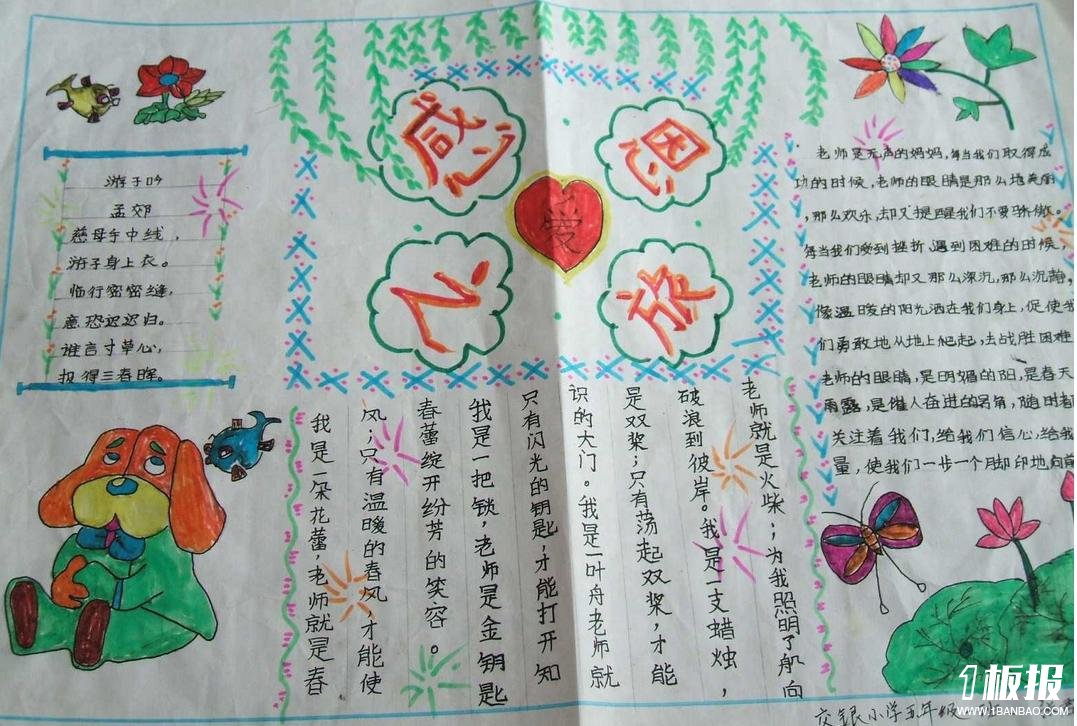 感恩
爱
之旅
游子吟
孟郊
慈母手中线，
游子身上衣。
临行密密缝，
意恐迟迟归。
谁言寸草心，
报得三春晖。
我是一朵花蕾，老师就是春
风；只有温暖的春风，才能使
春蕾绽开纷芳的笑容。
我是一把锁，老师是金钥匙
只有闪光的钥匙，才能打开知
识的大门。我是一叶舟老师就
是双桨；只有荡起双桨，才能
破浪到彼岸。我是一支蜡烛，
老师就是火柴；为我照明了航向
老师是无声的妈妈，每当我们取得成
功的时候，老师的眼睛是那么地美丽
，那么欢乐，却又提醒我们不要骄傲。
每当我们受到挫折，遇到困难的时候，
老师的眼睛却又那么深沉，那么沉静，
像温暖的阳光洒在我们身上，促使我
们勇敢地从地上爬起，去战胜困难
老师的眼睛，是明媚的阳，是春天
雨露，是催人奋进的号角，随时都
关注着我们，给我们信心，给我
量，使我们一步一个脚印地向前
交银小学五年级
1板报
WWW.1BANBAO.COM